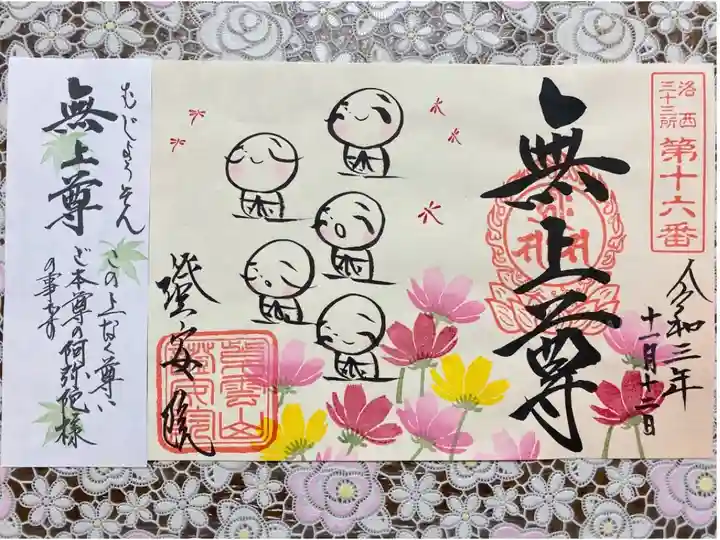 洛西
三十三所
第十六番
令和三年
十一月十二日
無上尊
簭安院
むじょうそん
無上尊
この上なく尊い
ご本尊の阿弥陀様
の事です